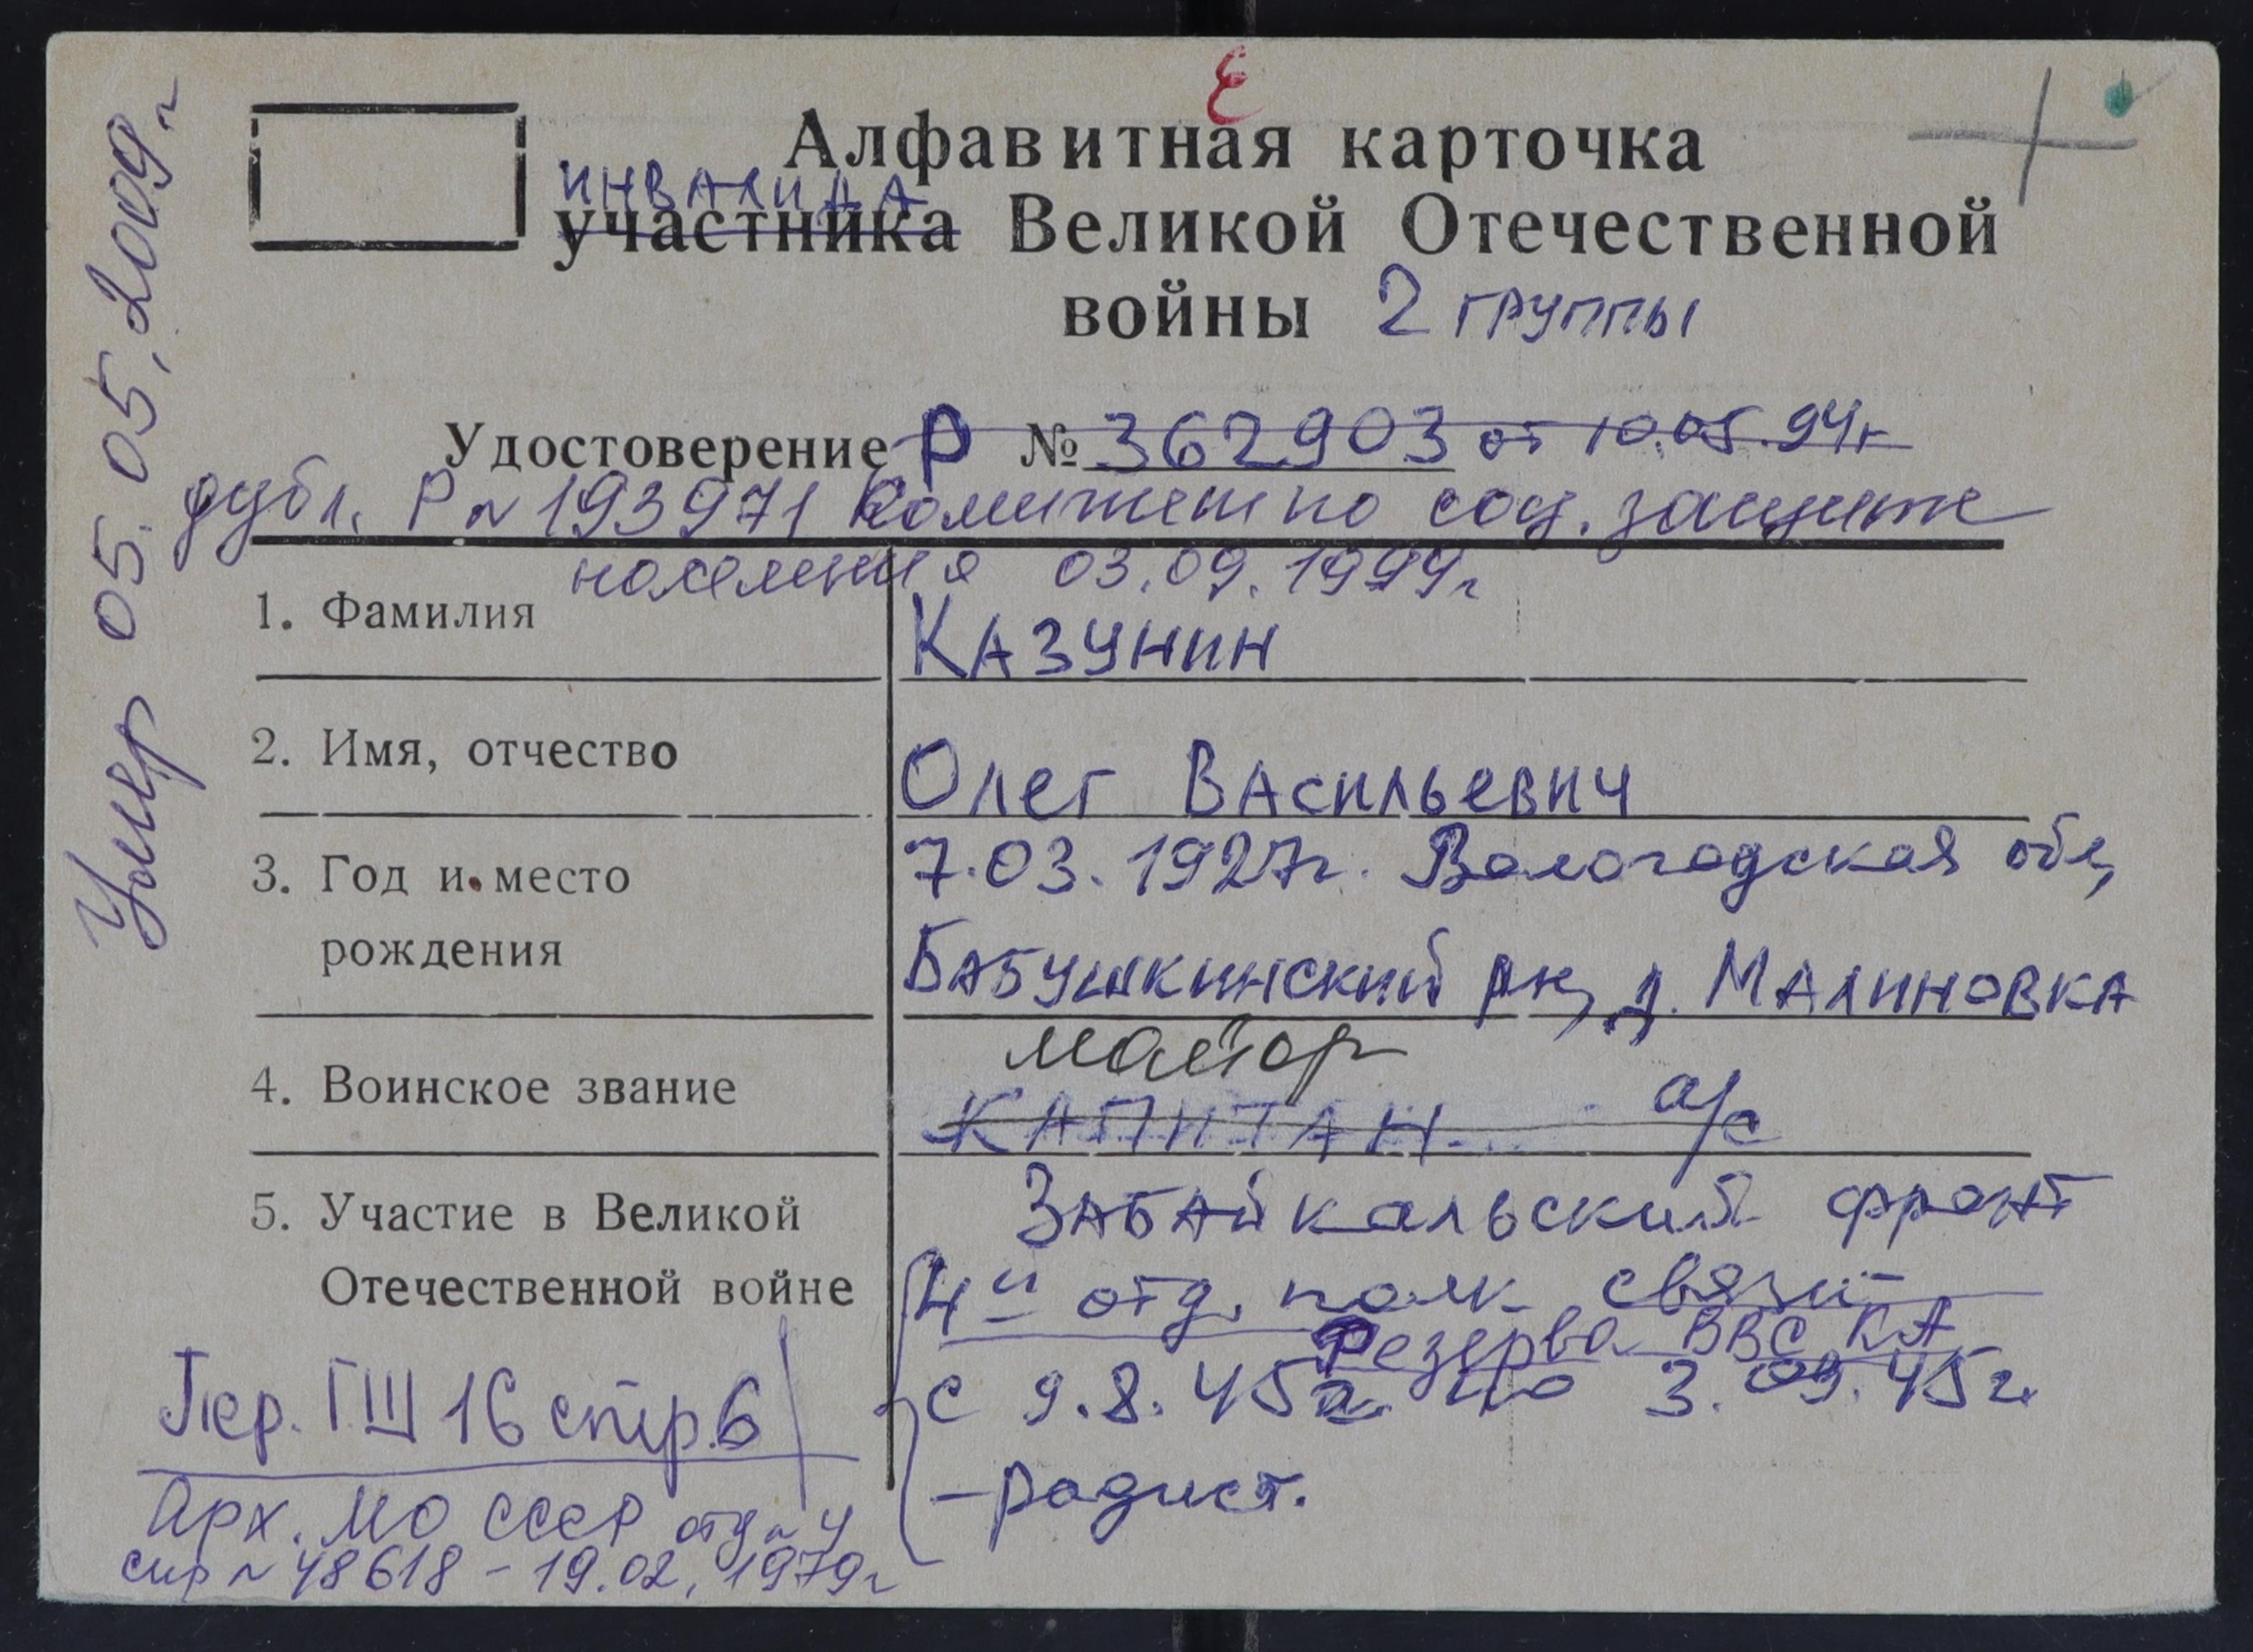 Е
Алфавитная карточка
ИНВАЛИДА
участника Великой Отечественной
войны 2 группы
Удостоверение Р № 362903 от 10.05.94г
дубл. Р № 193971 Комитет по соц. защите
населения 03.09.1999г
1. Фамилия КАЗУНИН
2. Имя, отчество Олег Васильевич
3. Год и место 7.03.1927г. Вологодская обл,
рождения Бабушкинский рн, д. Малиновка
майор
4. Воинское звание КАПИТАН а/с
5. Участие в Великой Забайкальский фронт
Отечественной войне 4й отд. полк связи
Резерва ВВС КА
с 9.8.45г. по 3.09.45г.
- радист.
Пер. ГШ 16 стр. 6
Арх. МО СССР отд № 4
спр № 48618 - 19.02.1979г
Умер 05.05.2009г